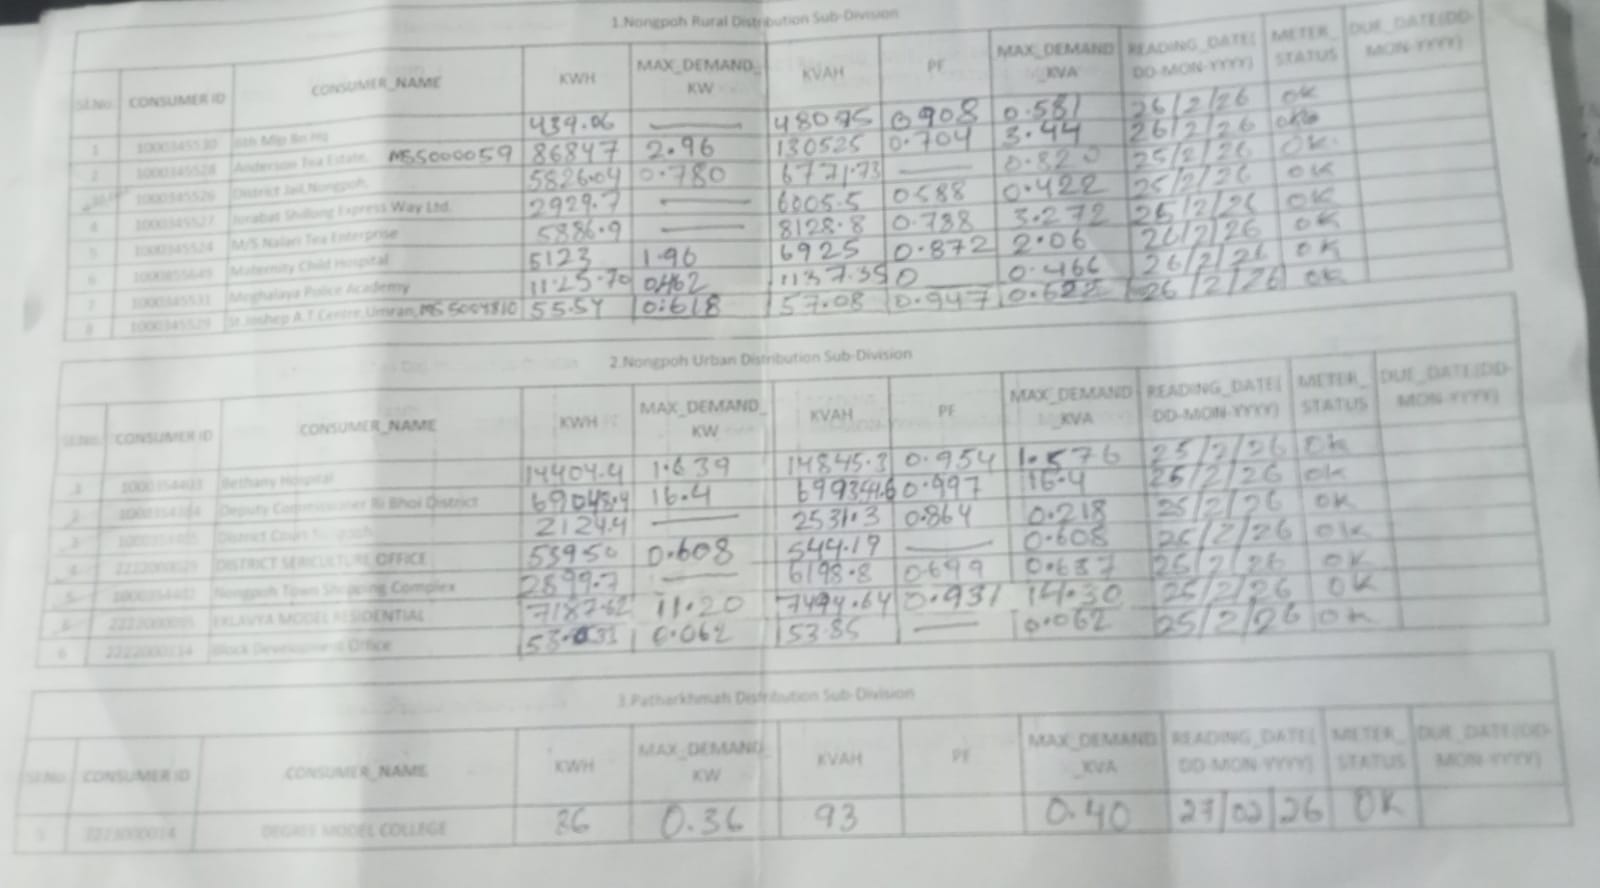 1.Nongpoh Rural Distribution Sub-Division
Sl.No. CONSUMER ID CONSUMER_NAME KWH MAX_DEMAND_KW KVAH PF MAX_DEMAND_KVA READING_DATE(DD-MON-YYYY) METER_STATUS DUE_DATE(DD-MON-YYYY)
1 439.06 — 0.908 0.581 26/2/26 OK
2 1000345528 Anderson Tea Estate, MSS000059 86847 2.96 130525 0.704 3.44 26/2/26
1000345526 District Jail,Nongpoh, 5826.04 0.780 6771.73 — 0.820 25/2/26 OK.
4 1000345527 Jorabat Shillong Express Way Ltd. 2929.7 — 6005.5 0.588 0.422 25/2/26 OK
5 1000345524 M/S Nalari Tea Enterprise 5886.9 — 8128.8 0.738 3.272 OK
6 Maternity Child Hospital 5123 1.96 6925 0.872 2.06 26/2/26 OK
7 1000345531 Meghalaya Police Academy 0.466 26/2/26 OK
8 1000345529 St.Joshep A.T.Centre,Umran, 55.54 0.618 57.08 0.947 26/2/26 OK
2.Nongpoh Urban Distribution Sub-Division
Sl.No. CONSUMER ID CONSUMER_NAME KWH MAX_DEMAND_KW KVAH PF MAX_DEMAND_KVA READING_DATE(DD-MON-YYYY) METER_STATUS DUE_DATE(DD-MON-YYYY)
1 Bethany Hospital 14404.4 1.639 14845.3 0.954 1.576 25/2/26 OK
2 Deputy Commissioner Ri Bhoi District 16.4 0.997 16.4 25/2/26 OK
3 District Court 2124.4 — 2531.3 0.864 0.218 25/2/26 OK
4 DISTRICT SERICULTURE OFFICE 0.608 544.19 — 0.608 25/2/26 OK
5 Nongpoh Town Shopping Complex 2899.7 — 6198.8 0.699 0.687 25/2/26 OK
6 EKLAVYA MODEL RESIDENTIAL 7187.62 11.20 7494.64 0.931 14.30 25/2/26 OK
6 2222000114 Block Development Office 0.062 53.85 — 0.062 25/2/26 OK
3.Patharkhmah Distribution Sub-Division
Sl.No. CONSUMER ID CONSUMER_NAME KWH MAX_DEMAND_KW KVAH PF MAX_DEMAND_KVA READING_DATE(DD-MON-YYYY) METER_STATUS DUE_DATE(DD-MON-YYYY)
2223000014 DEGREE MODEL COLLEGE 86 0.36 93 0.40 27/02/26 OK